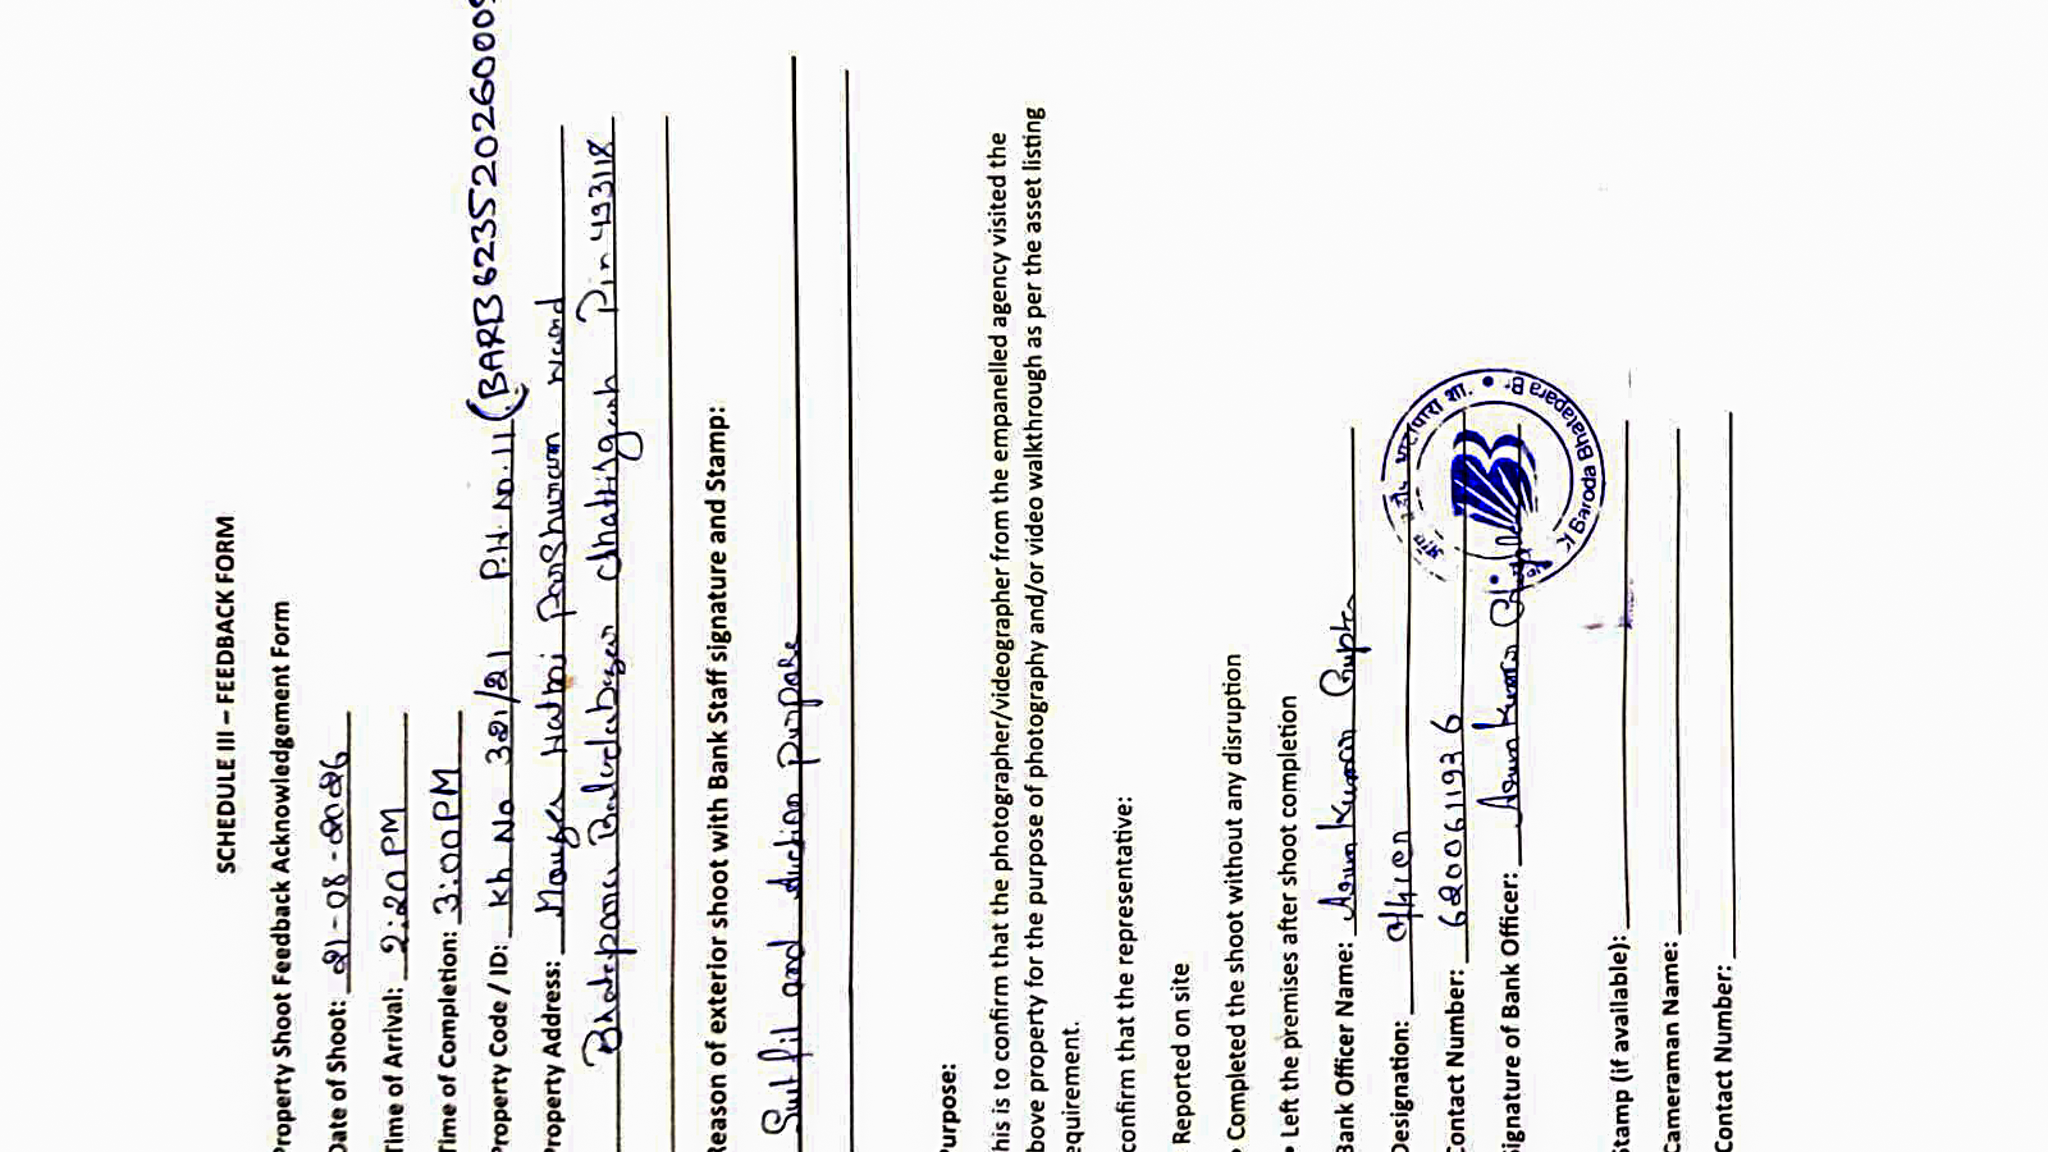 SCHEDULE III – FEEDBACK FORM
Property Shoot Feedback Acknowledgement Form
Date of Shoot: 21-08-2026
Time of Arrival: 2:20 PM
Time of Completion: 3:00 PM
Property Code / ID: Kh No 321/21 P.H. No. 11 (BARB623520260009
Property Address: Mouza Hatni Parshuram Ward
Bhatapara Balodabazar Chhattisgarh Pin 493118
Reason of exterior shoot with Bank Staff signature and Stamp:
and Auction purpose
Purpose:
his is to confirm that the photographer/videographer from the empanelled agency visited the
bove property for the purpose of photography and/or video walkthrough as per the asset listing
equirement.
confirm that the representative:
Reported on site
• Completed the shoot without any disruption
• Left the premises after shoot completion
Bank Officer Name: Arun Kumar Gupta
Designation: Officer
Contact Number: 6200611936
Signature of Bank Officer: Arun Kumar Gupta
Baroda Bhatapara Br
Stamp (if available):
Cameraman Name:
Contact Number: